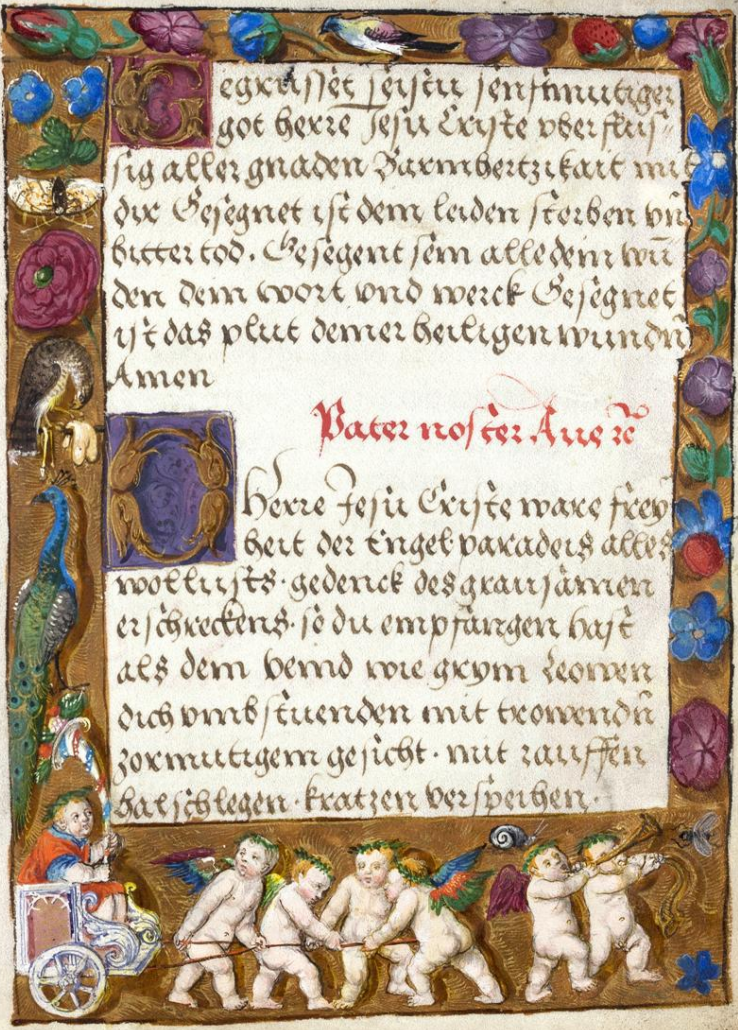 Gegrüsset seistu senftmütiger
got herre Jesu Criste vberflüs=
sig aller gnaden Barmhertzikait mit
dir Gesegnet ist dein leiden sterben vn̄
bitter tod. Gesegent sein alle dein wū
den dein wort vnd werck Gesegnet
ist das plut deiner heiligen wundn̄
Amen
Pater noster Aue rc̄
O Herre Jesu Criste ware frey
heit der Engel paradeis alles
wollusts· gedenck des grausamen
erschreckens· so du empfangen hast
als dein veind wie grym Leowen
dich vmbstuenden mit trowendn̄
zornmutigem gesicht· mit rauffen
halschlegen· kratzen verspeihen·